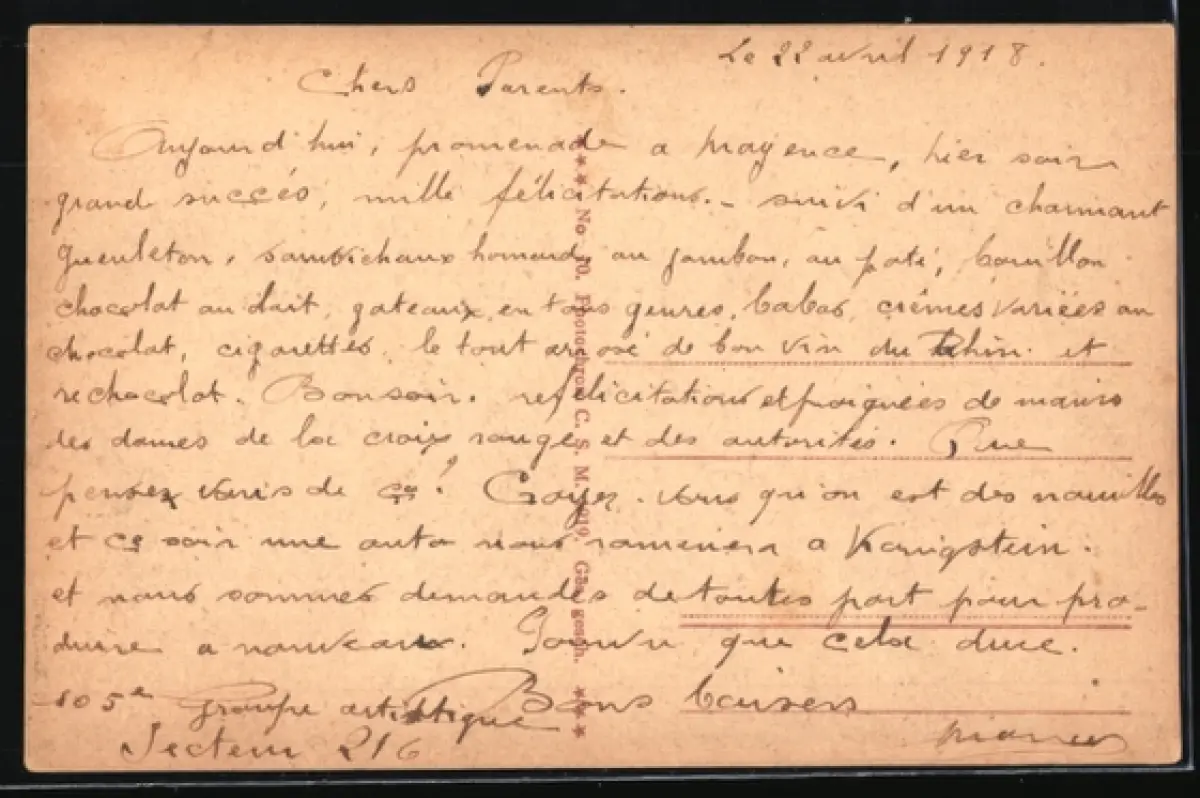 Le 22 avril 1918.
Chers Parents.
Aujourd'hui, promenade a Mayence, hier soir
grand succés, mille félicitations. - suivi d'un charmant
gueuleton, sandvichaux homard, au jambon, au paté, bouillon
chocolat au lait, gateaux en tous genres, babas, crêmes variées au
chocolat, cigarettes, le tout arrosé de bon vin du Rhin. et
rechocolat. Bonsoir. refélicitations et poignées de mains
des dames de la croix rouge et des autorités. Que
pensez vous de ça? Croyez-vous qu'on est des nouilles
et ce soir une auto nous ramenera a Kœnigstein.
et nous sommes demandés de toutes part pour pro-
duire a nouveau. Pourvu que cela dure.
105e Groupe artistique Bons baisers
Secteur 216
★★★ No Photochrom C. S. M. ★★★